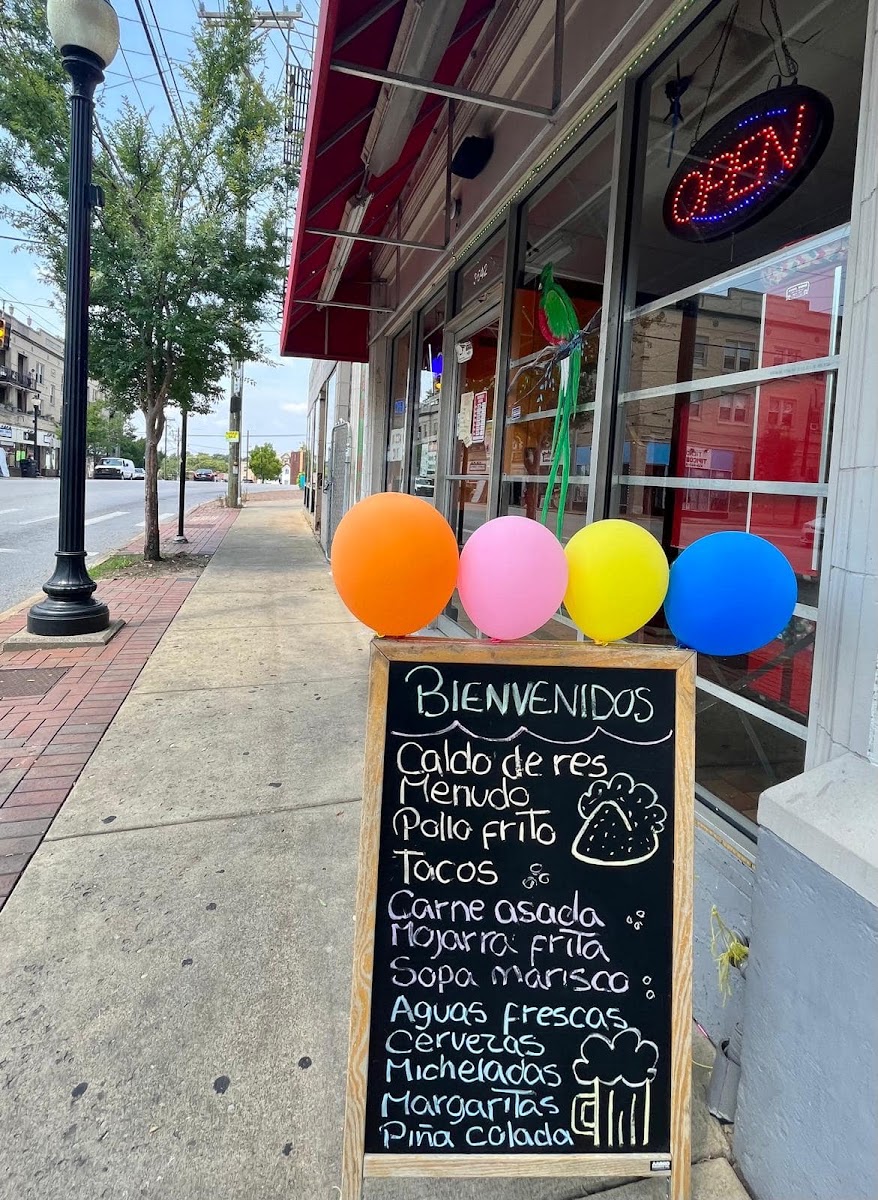 OPEN
3642
BIENVENIDOS
Caldo de res
Menudo
Pollo frito
Tacos
Carne asada
Mojarra frita
Sopa marisco
Aguas frescas
Cervezas
Micheladas
Margaritas
Piña colada